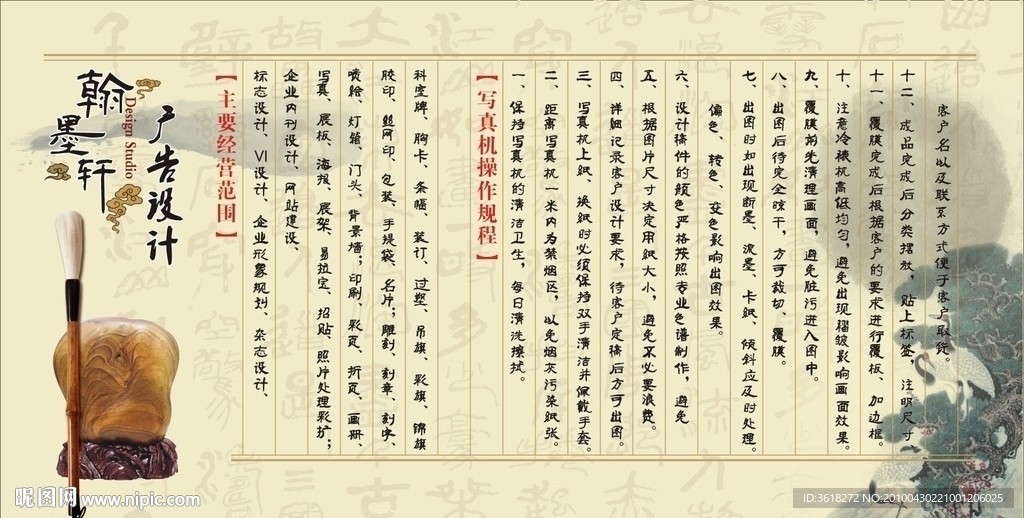 翰墨轩
Design Studio
广告设计
【主要经营范围】
标志设计、VI设计、企业形象规划、杂志设计、
企业内刊设计、网站建设、
写真、展板、海报、展架、易拉宝、招贴、照片处理彩扩；
喷绘、灯箱、门头、背景墙；印刷、彩页、折页、画册、
胶印、丝网印、包装、手提袋、名片；雕刻、刻章、刻字、
科室牌、胸卡、条幅、装订、过塑、吊旗、彩旗、锦旗
【写真机操作规程】
一、保持写真机的清洁卫生，每日清洗擦拭。
二、距离写真机一米内为禁烟区，以免烟灰污染纸张。
三、写真机上纸、换纸时必须保持双手清洁并佩戴手套。
四、详细记录客户设计要求，待客户定稿后方可出图。
五、根据图片尺寸决定用纸大小，避免不必要浪费。
六、设计稿件的颜色严格按照专业色谱制作，避免
偏色、转色、变色影响出图效果。
七、出图时如出现断墨、流墨、卡纸、倾斜应及时处理。
八、出图后待完全晾干，方可裁切、覆膜。
九、覆膜前先清理画面，避免脏污进入图中。
十、注意冷裱机高低均匀，避免出现褶皱影响画面效果。
十一、覆膜完成后根据客户的要求进行覆板、加边框。
十二、成品完成后分类摆放，贴上标签，注明尺寸
客户名以及联系方式便于客户取货。
昵图网 www.nipic.com
ID:3618272 NO:20100430221001206025